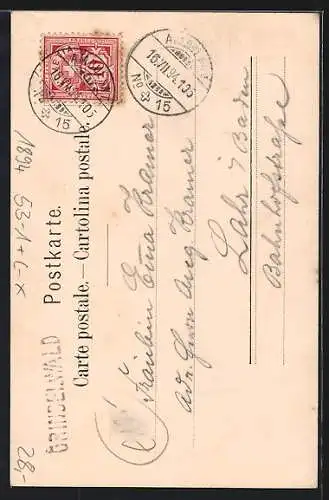 Postkarte.
Carte postale. — Cartolina postale.
GRINDELWALD
16.VII.94.
No 15
No 15
Fräulein Erna Kramer
Adr. Herrn Aug. Kramer
Lahr i/ Baden
Bahnhofstraße
1894
53-1+L-x
28,-